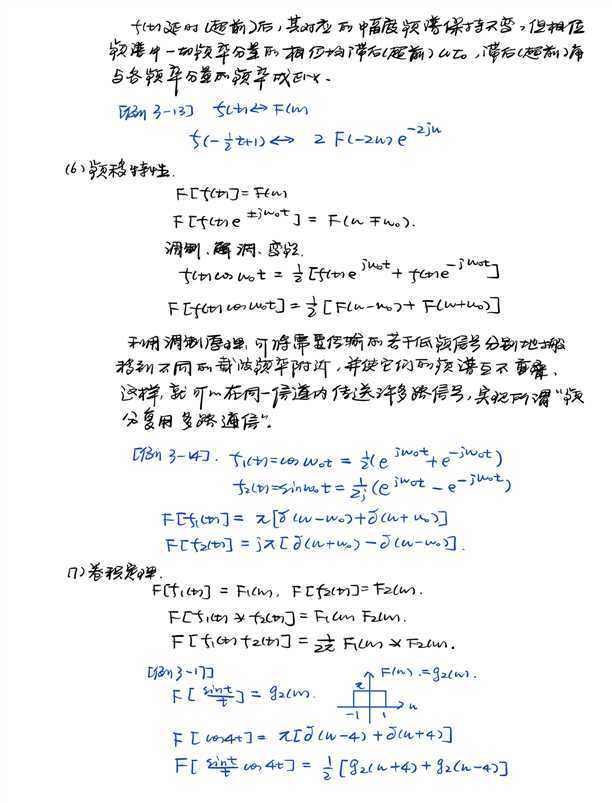 f(t)延时(超前)后,其对应的幅度频谱保持不变,但相位
频谱中一切频率分量的相位均滞后(超前)ωt₀,滞后(超前)角
与各频率分量的频率成正比.
[例3-13] f(t)↔F(ω)
f(-½t+1)↔ 2F(-2ω)e^{-2jω}
(6)频移特性.
F[f(t)]=F(ω)
F[f(t)e^{±jω₀t}] = F(ω∓ω₀).
调制、解调、变频.
f(t)cosω₀t = ½[f(t)e^{jω₀t}+f(t)e^{-jω₀t}]
F[f(t)cosω₀t]=½[F(ω-ω₀)+F(ω+ω₀)]
利用调制原理,可将需要传输的若干低频信号分别地搬
移到不同的载波频率附近,并使它们的频谱互不重叠.
这样,就可以在同一信道内传送许多路信号,实现所谓“频
分复用多路通信”.
[例3-14]. f₁(t)=cosω₀t = ½(e^{jω₀t}+e^{-jω₀t})
f₂(t)=sinω₀t = 1/2j (e^{jω₀t}-e^{-jω₀t})
F[f₁(t)] = π[δ(ω-ω₀)+δ(ω+ω₀)]
F[f₂(t)] = jπ[δ(ω+ω₀)-δ(ω-ω₀)].
(7)卷积定理.
F[f₁(t)] = F₁(ω), F[f₂(t)]=F₂(ω).
F[f₁(t)*f₂(t)] = F₁(ω)F₂(ω).
F[f₁(t)f₂(t)] = 1/2π F₁(ω)*F₂(ω).
[例3-17]
F[sint/t] = g₂(ω).
F(ω).=g₂(ω).
π
-1 1 ω
F[cos4t] = π[δ(ω-4)+δ(ω+4)]
F[sint/t cos4t] = ½[g₂(ω+4)+g₂(ω-4)]